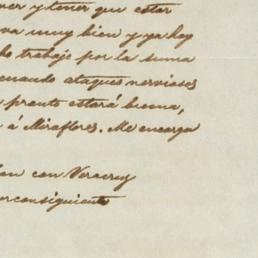 ner y tener que estar
va muy bien y ya hay
ho trabajo por la suma
cuando ataques nerviosos
y pronto estará buena,
á Miraflores. Me encarga
con Veracruz
porconsiguiente